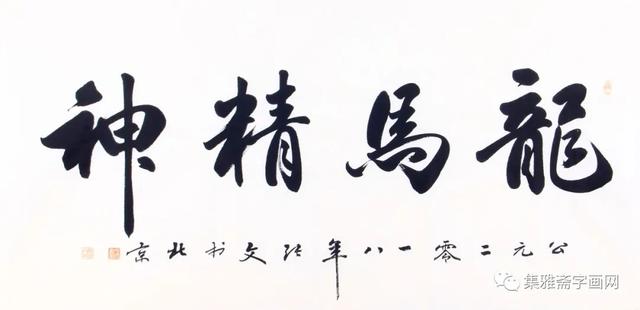 龍馬精神
公元二零一八年张文书北京
集雅斋字画网